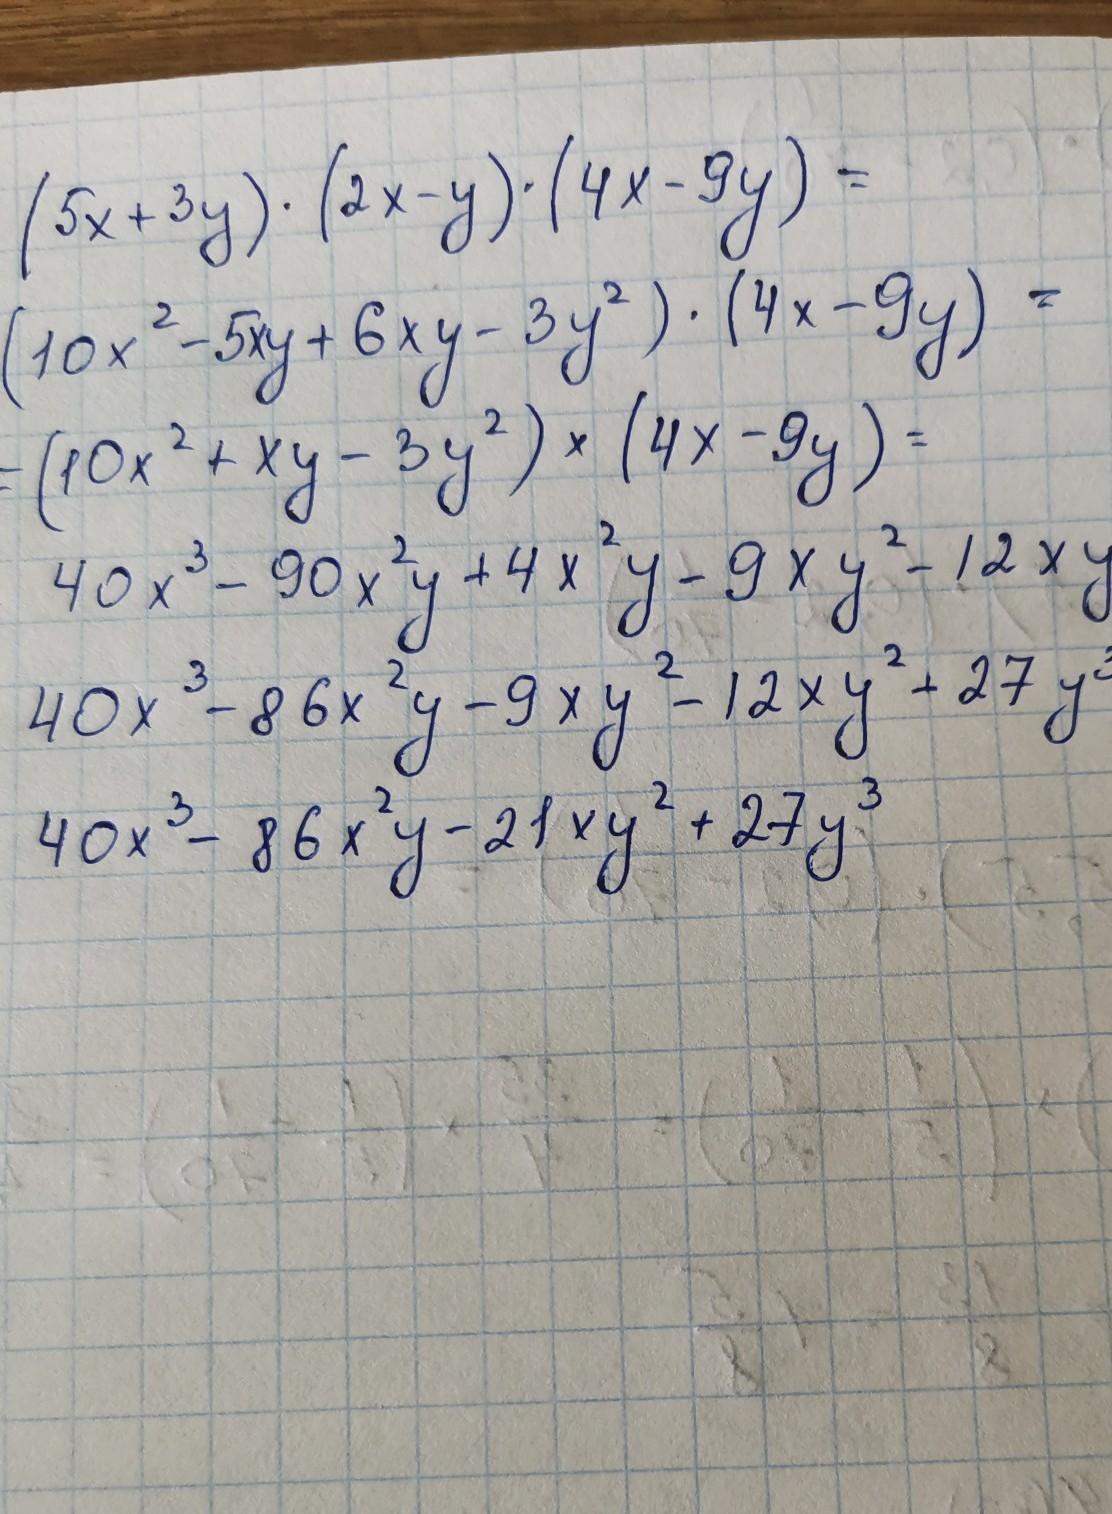 (5x+3y)·(2x-y)·(4x-9y)=
(10x²-5xy+6xy-3y²)·(4x-9y)=
=(10x²+xy-3y²)×(4x-9y)=
40x³-90x²y+4x²y-9xy²-12xy
40x³-86x²y-9xy²-12xy²+27y³
40x³-86x²y-21xy²+27y³